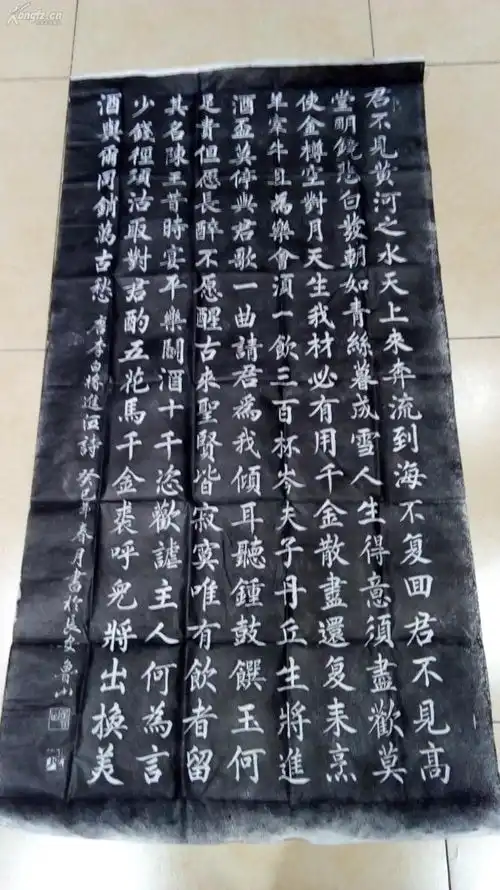 君不見黃河之水天上來奔流到海不复回君不見高
堂明鏡悲白發朝如青絲暮成雪人生得意須盡歡莫
使金樽空對月天生我材必有用千金散盡還复来烹
羊宰牛且為樂會須一飲三百杯岑夫子丹丘生將進
酒盃莫停與君歌一曲請君爲我傾耳聽鍾鼓饌玉何
足貴但愿長醉不愿醒古來聖賢皆寂寞唯有飲者留
其名陳王昔時宴平樂鬭酒十千恣歡謔主人何為言
少錢徑須沽取對君酌五花馬千金裘呼兒將出換美
酒與爾同銷萬古愁 唐李白將進酒詩 癸巳年春月書於長安魯山
Kongfz.cn